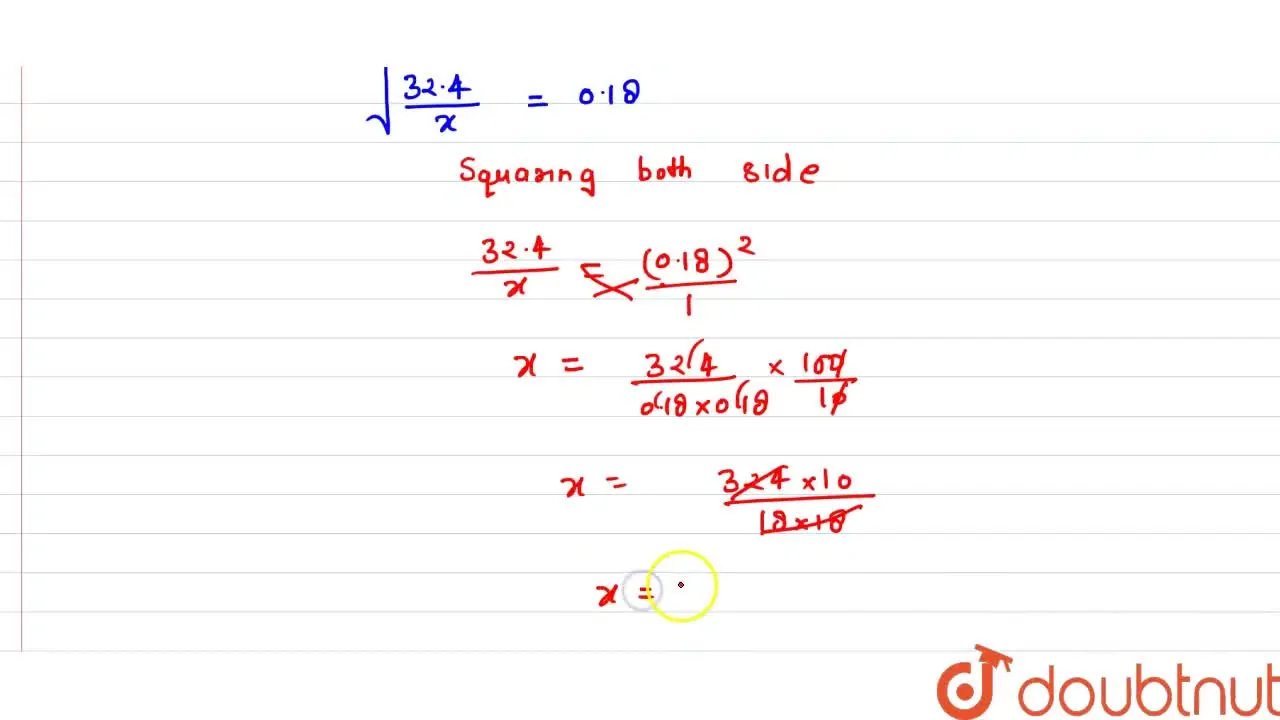 √(32.4/x) = 0.18
Squaring both side
32.4/x = (0.18)²/1
x = 32.4/(0.18×0.18) × 1000/10
x = 324×10/(18×18)
x =
doubtnut